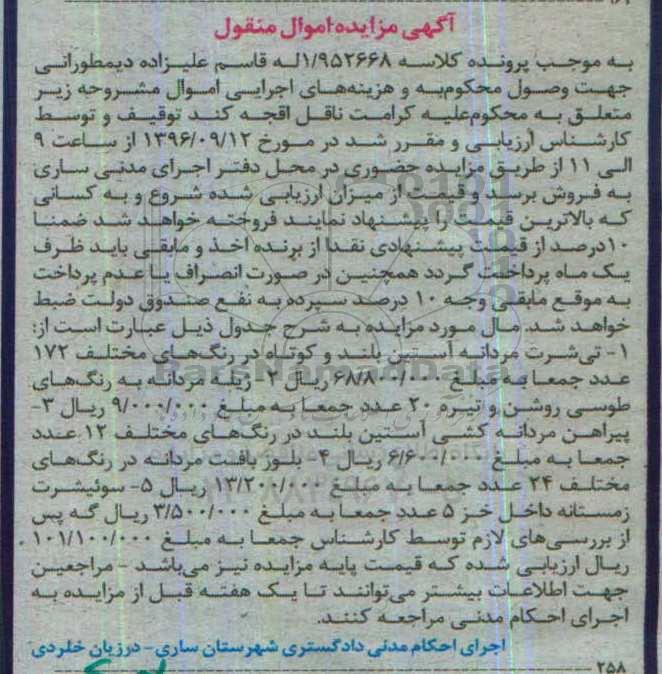 آگهی مزایده اموال منقول
به موجب پرونده کلاسه ۱/۹۵۲۶۶۸له قاسم علیزاده دیمطورانی
جهت وصول محکوم‌به و هزینه‌های اجرایی اموال مشروحه زیر
متعلق به محکوم‌علیه کرامت ناقل اقجه کند توقیف و توسط
کارشناس ارزیابی و مقرر شد در مورخ ۱۳۹۶/۰۹/۱۲ از ساعت ۹
الی ۱۱ از طریق مزایده حضوری در محل دفتر اجرای مدنی ساری
به فروش برسد و قیمت از میزان ارزیابی شده شروع و به کسانی
که بالاترین قیمت را پیشنهاد نمایند فروخته خواهد شد ضمنا
۱۰درصد از قیمت پیشنهادی نقدا از برنده اخذ و مابقی باید ظرف
یک ماه پرداخت گردد همچنین در صورت انصراف یا عدم پرداخت
به موقع مابقی وجه ۱۰ درصد سپرده به نفع صندوق دولت ضبط
خواهد شد. مال مورد مزایده به شرح جدول ذیل عبارت است از:
۱- تی‌شرت مردانه آستین بلند و کوتاه در رنگ‌های مختلف ۱۷۲
عدد جمعا به مبلغ ۶۸/۸۰۰/۰۰۰ ریال ۲- ژیله مردانه به رنگ‌های
طوسی روشن و تیره ۲۰ عدد جمعا به مبلغ ۹/۰۰۰/۰۰۰ ریال ۳-
پیراهن مردانه کشی آستین بلند در رنگ‌های مختلف ۱۲ عدد
جمعا به مبلغ ۶/۶۰۰/۰۰۰ ریال ۴- بلوز بافت مردانه در رنگ‌های
مختلف ۲۴ عدد جمعا به مبلغ ۱۳/۲۰۰/۰۰۰ ریال ۵- سوئیشرت
زمستانه داخل خز ۵ عدد جمعا به مبلغ ۳/۵۰۰/۰۰۰ ریال که پس
از بررسی‌های لازم توسط کارشناس جمعا به مبلغ ۱۰۱/۱۰۰/۰۰۰
ریال ارزیابی شده که قیمت پایه مزایده نیز می‌باشد - مراجعین
جهت اطلاعات بیشتر می‌توانند تا یک هفته قبل از مزایده به
اجرای احکام مدنی مراجعه کنند.
اجرای احکام مدنی دادگستری شهرستان ساری- درزیان خلردی
۲۵۸
ParsNamadData